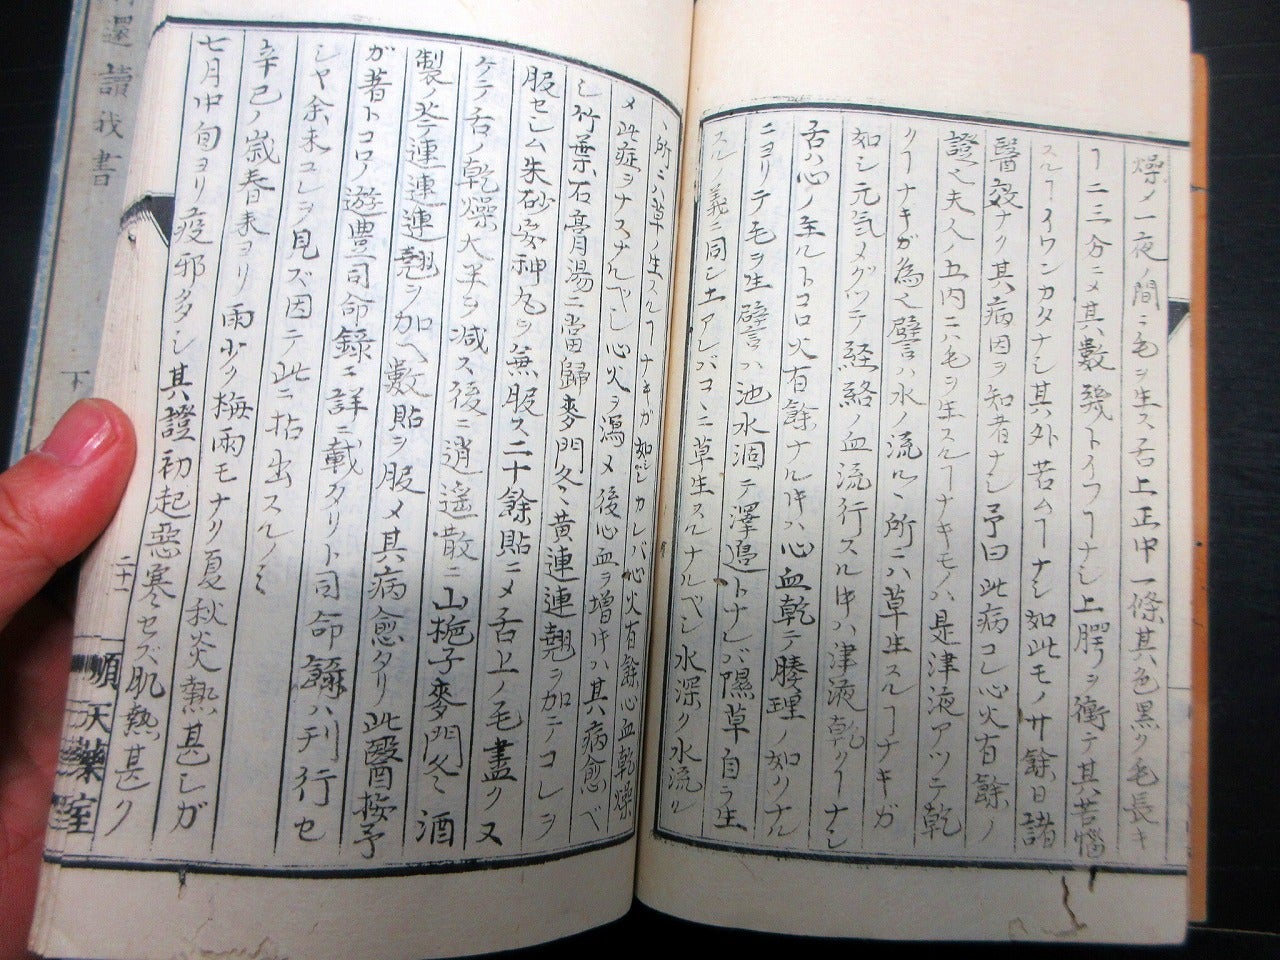 燥〆一夜ノ間ニ毛ヲ生ス舌上正中一條其色黒ク毛長キ
ヿ二三分ニ〆其數幾トイフヿナシ上腭ヲ衝テ其苦惱
スルヿイワンカタナシ其外苦ムヿナシ如此モノ廿餘日諸
醫效ナク其病因ヲ知者ナシ予曰此病コレ心火有餘ノ
證也夫人ノ五内ニハ毛ヲ生スルヿナキモノハ是津液アツテ乾
クヿナキガ為也譬ハ水ノ流ルヽ所ニハ草生スルヿナキガ
如シ元気メグツテ経絡ノ血流行スル時ハ津液乾クヿナシ
舌ハ心ノ主ルトコロ火有餘ナル時ハ心血乾テ腠理ノ如クナル
ニヨリテ毛ヲ生譬ハ池水涸テ澤邉トナレバ隰草自ラ生
スルノ義ニ同シ土アレバコヽニ草生スルナルベシ水深ク水流ル
所ニハ草ノ生スルヿナキガ如シシカレバ心火有餘心血乾燥
〆此症ヲナスナルベシ心火ヲ瀉〆後心血ヲ増時ハ其病愈ベ
シ竹葉石膏湯ニ當歸麥門冬黄連連翹ヲ加テコレヲ
服セシム朱砂安神丸ヲ兼服ス二十餘貼ニ〆舌上ノ毛盡ク又
ケテ舌ノ乾燥大半ヲ减ス後ニ逍遥散ニ山梔子麥門冬酒
製ノ芩連連翹ヲ加ヘ數貼ヲ服〆其病愈タリ此醫按予
ガ著トコロノ遊豊司命録ニ詳ニ載タリト司命録ハ刊行セ
シヤ余未コレヲ見ズ因テ此ニ拈出スルノミ
辛巳ノ歳春来ヨリ雨少ク梅雨モナク夏秋炎熱甚シガ
七月中旬ヨリ疫邪多シ其證初起惡寒セズ肌熱甚ク
二十一
順天藥室
讀我書
下